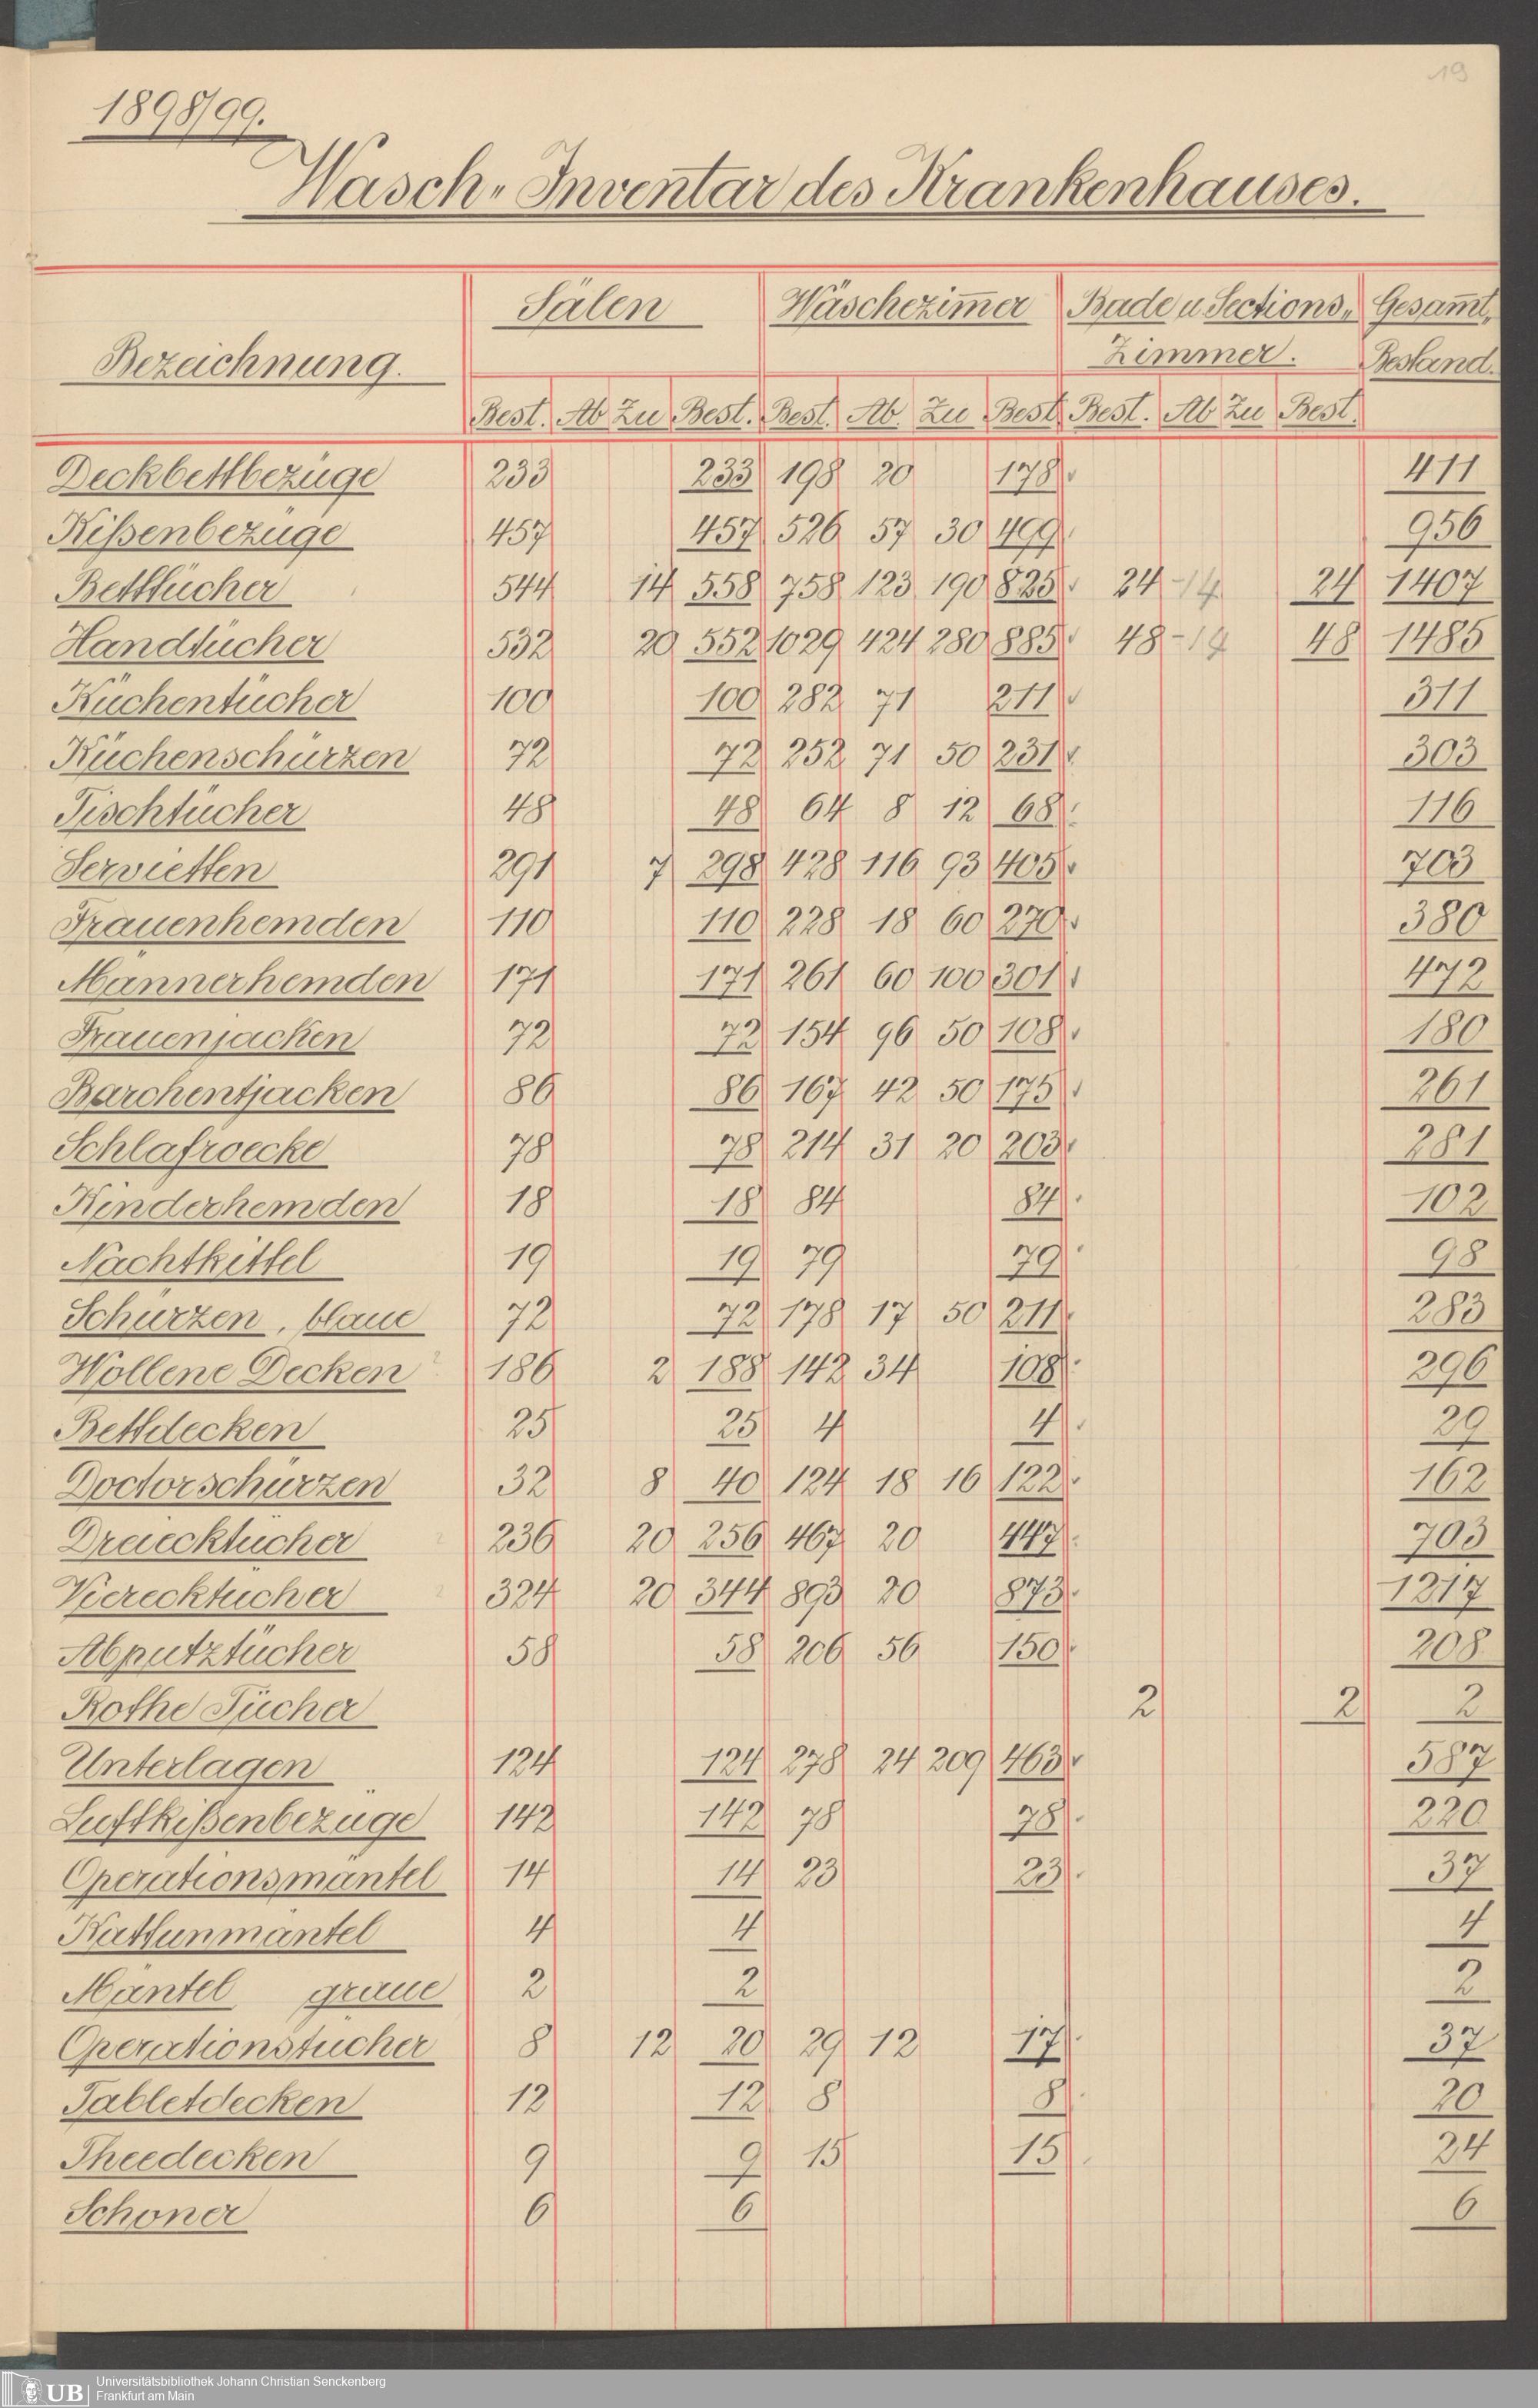 19
1898/99.
Wasch-Inventar des Krankenhauses.
Bezeichnung. Sälen Wäschezimmer Bade u Sections- Zimmer. Gesammt- Bestand.
Best. Ab Zu Best. Best. Ab. Zu Best Best. Ab Zu Best.
Deckbettbezüge 233 233 198 20 178 411
Kißenbezüge 457 457 526 57 30 499 956
Betttücher 544 14 558 758 123 190 825 24 -14 24 1407
Handtücher 532 20 552 1029 424 280 885 48 -14 48 1485
Küchentücher 100 100 282 71 211 311
Küchenschürzen 72 72 252 71 50 231 303
Tischtücher 48 48 64 8 12 68 116
Servietten 291 7 298 428 116 93 405 703
Frauenhemden 110 110 228 18 60 270 380
Männerhemden 171 171 261 60 100 301 472
Frauenjacken 72 72 154 96 50 108 180
Barchentjacken 86 86 167 42 50 175 261
Schlafroecke 78 78 214 31 20 203 281
Kinderhemden 18 18 84 84 102
Nachtkittel 19 19 79 79 98
Schürzen, blaue 72 72 178 17 50 211 283
Wollene Decken 186 2 188 142 34 108 296
Bettdecken 25 25 4 4 29
Doctorschürzen 32 8 40 124 18 16 122 162
Dreiecktücher 236 20 256 467 20 447 703
Vierecktücher 324 20 344 893 20 873 1217
Abputztücher 58 58 206 56 150 208
Rothe Tücher 2 2 2
Unterlagen 124 124 278 24 209 463 587
Luftkißenbezüge 142 142 78 78 220
Operationsmäntel 14 14 23 23 37
Kattunmäntel 4 4 4
Mäntel graue 2 2 2
Operationstücher 8 12 20 29 12 17 37
Tabletdecken 12 12 8 8 20
Theedecken 9 9 15 15 24
Schoner 6 6 6
UB Universitätsbibliothek Johann Christian Senckenberg
Frankfurt am Main